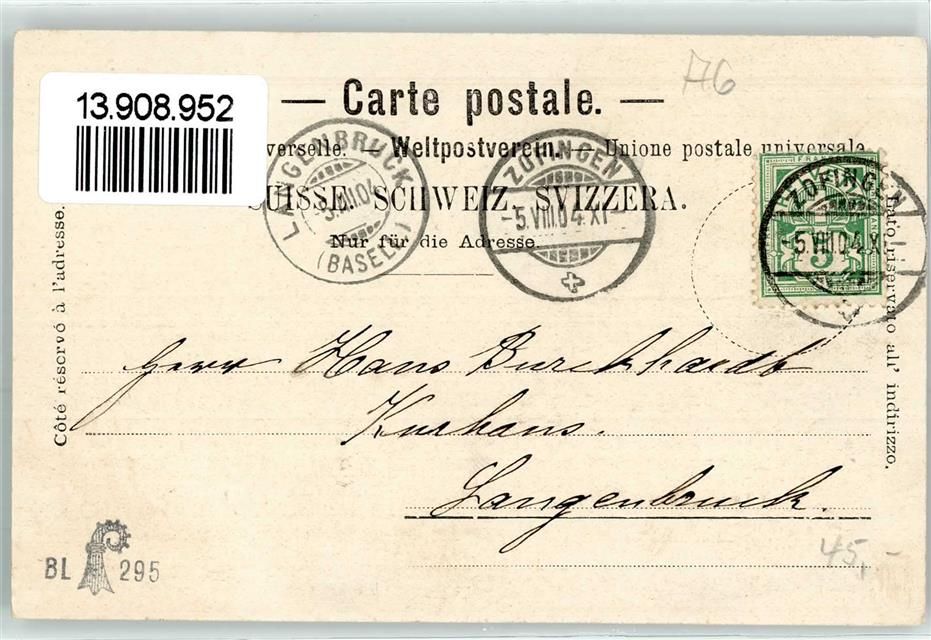 A6
13.908.952
— Carte postale. —
verselle. — Weltpostverein. — Unione postale universale
SUISSE. SCHWEIZ. SVIZZERA.
Nur für die Adresse.
LANGENBRUCK
5.VIII.04
(BASELL.)
ZOFINGEN
-5.VIII.04.XI-
ZOFINGEN
-5.VIII.04.XI-
FRANCO
5
Côté réservé à l'adresse.
Lato riservato all' indirizzo.
Herr Hans Burckhardt
Kurhaus.
Langenbruck.
BL 295
45,-